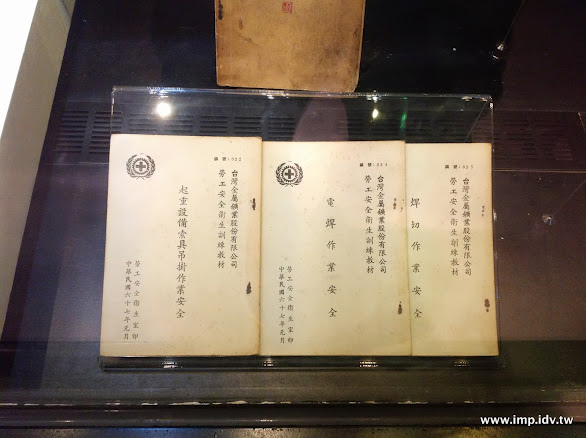 編號:022
台灣金屬鑛業股份有限公司
勞工安全衛生訓練教材
起重設備索具吊掛作業安全
勞工安全衛生室印
中華民國六十七年元月
編號:024
台灣金屬鑛業股份有限公司
勞工安全衛生訓練教材
電焊作業安全
勞工安全衛生室印
中華民國六十七年元月
台灣金屬鑛業股份有限公司
勞工安全衛生訓練教材
焊切作業安全
www.imp.idv.tw